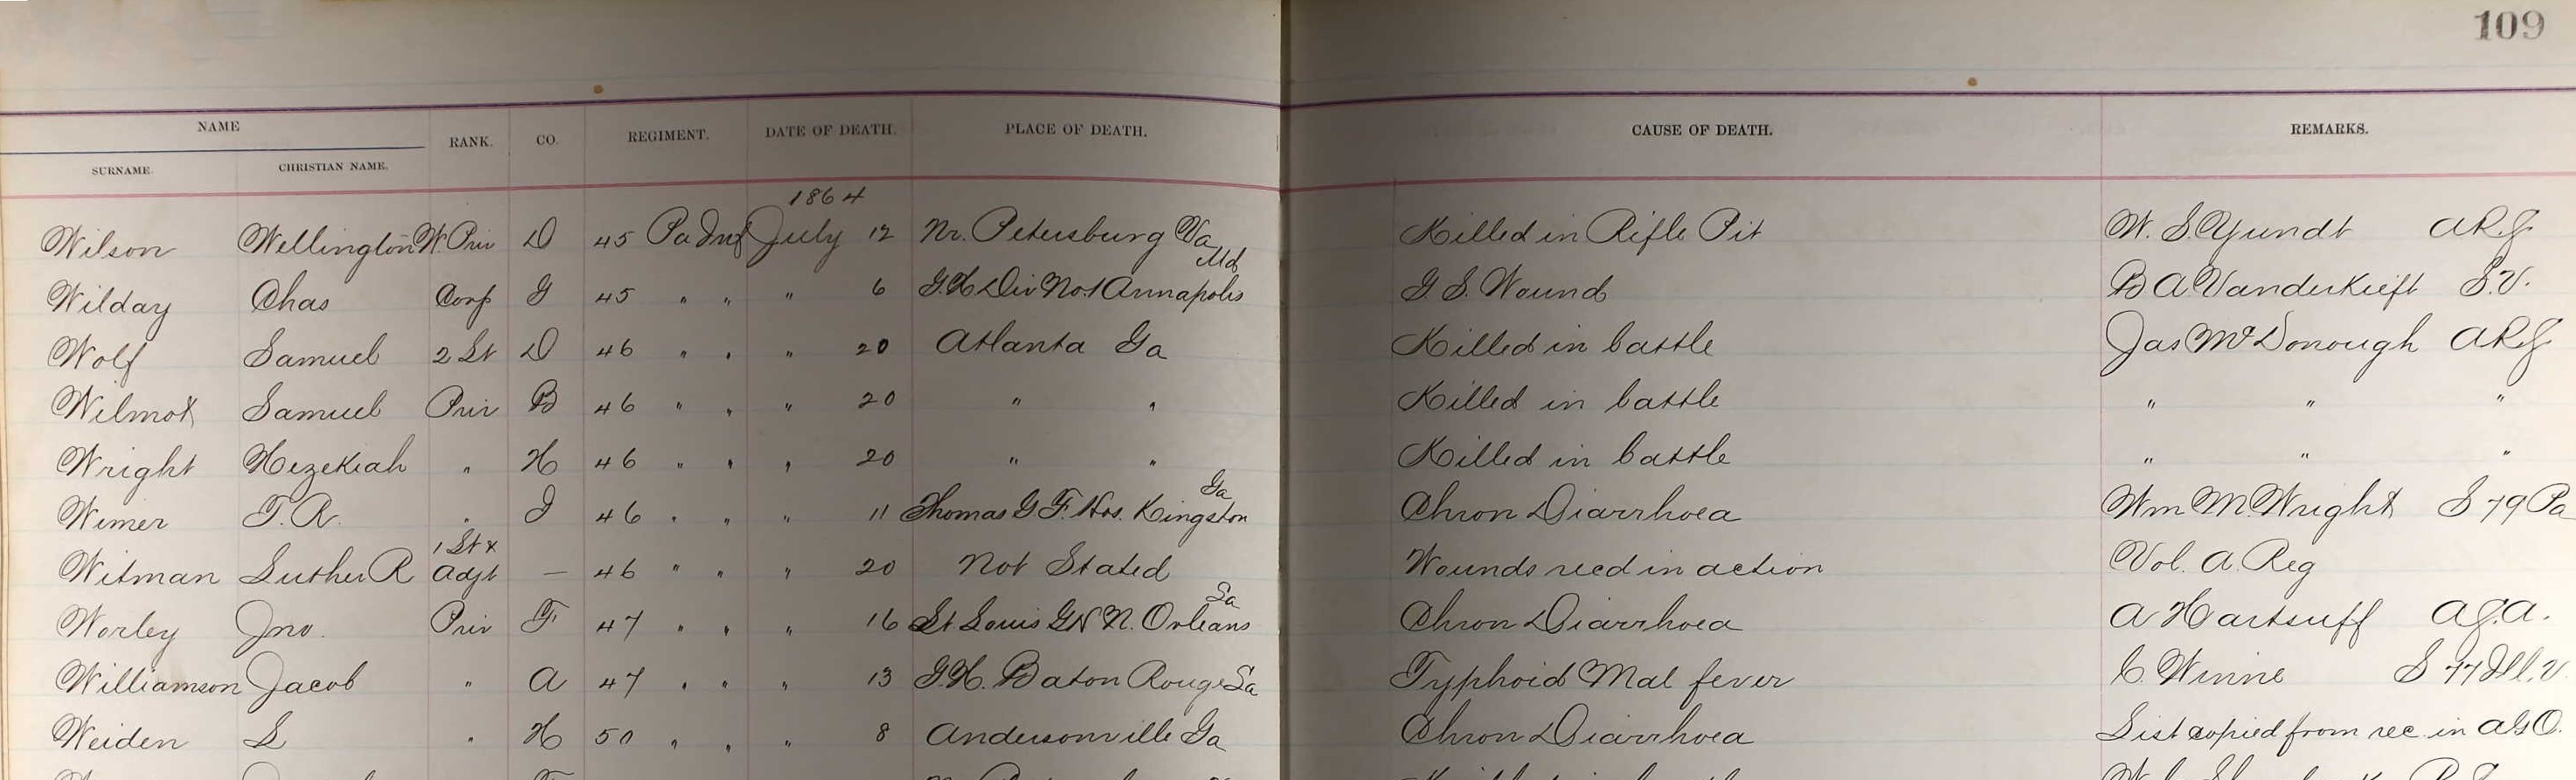 109
NAME RANK. CO. REGIMENT. DATE OF DEATH. PLACE OF DEATH. CAUSE OF DEATH. REMARKS.
SURNAME. CHRISTIAN NAME.
1864
Wilson Wellington W. Priv D 45 Pa Inf July 12 Nr. Petersburg Va Killed in Rifle Pit W. S. Yundt A R.G
Wilday Chas Corp G 45 " " " 6 G.H Div No. 1 Annapolis Md G. S. Wound B A. Vanderkieft S. V.
Wolf Samuel 2 Lt D 46 " " " 20 Atlanta Ga Killed in battle Jas McDonough A R.G
Wilmot Samuel Priv B 46 " " " 20 " " Killed in battle " " "
Wright Hezekiah " H 46 " " " 20 " " Killed in battle " " "
Wimer T. R. " I 46 " " " 11 Thomas G F. Hos. Kingston Ga Chron Diarrhoea Wm M. Wright S 79 Pa
Witman Luther R 1 Lt & Adjt — 46 " " " 20 Not Stated Wounds recd in action Vol. A. Reg
Worley Jno. Priv F 47 " " " 16 St Louis G H N. Orleans La Chron Diarrhoea A Hartsuff A.G.A.
Williamson Jacob " A 47 " " " 13 G.H. Baton Rouge La Typhoid Mal fever C. Winne S 77 Ill. V
Weiden L " H 50 " " " 8 Andersonville Ga Chron Diarrhoea List copied from rec. in A G O.